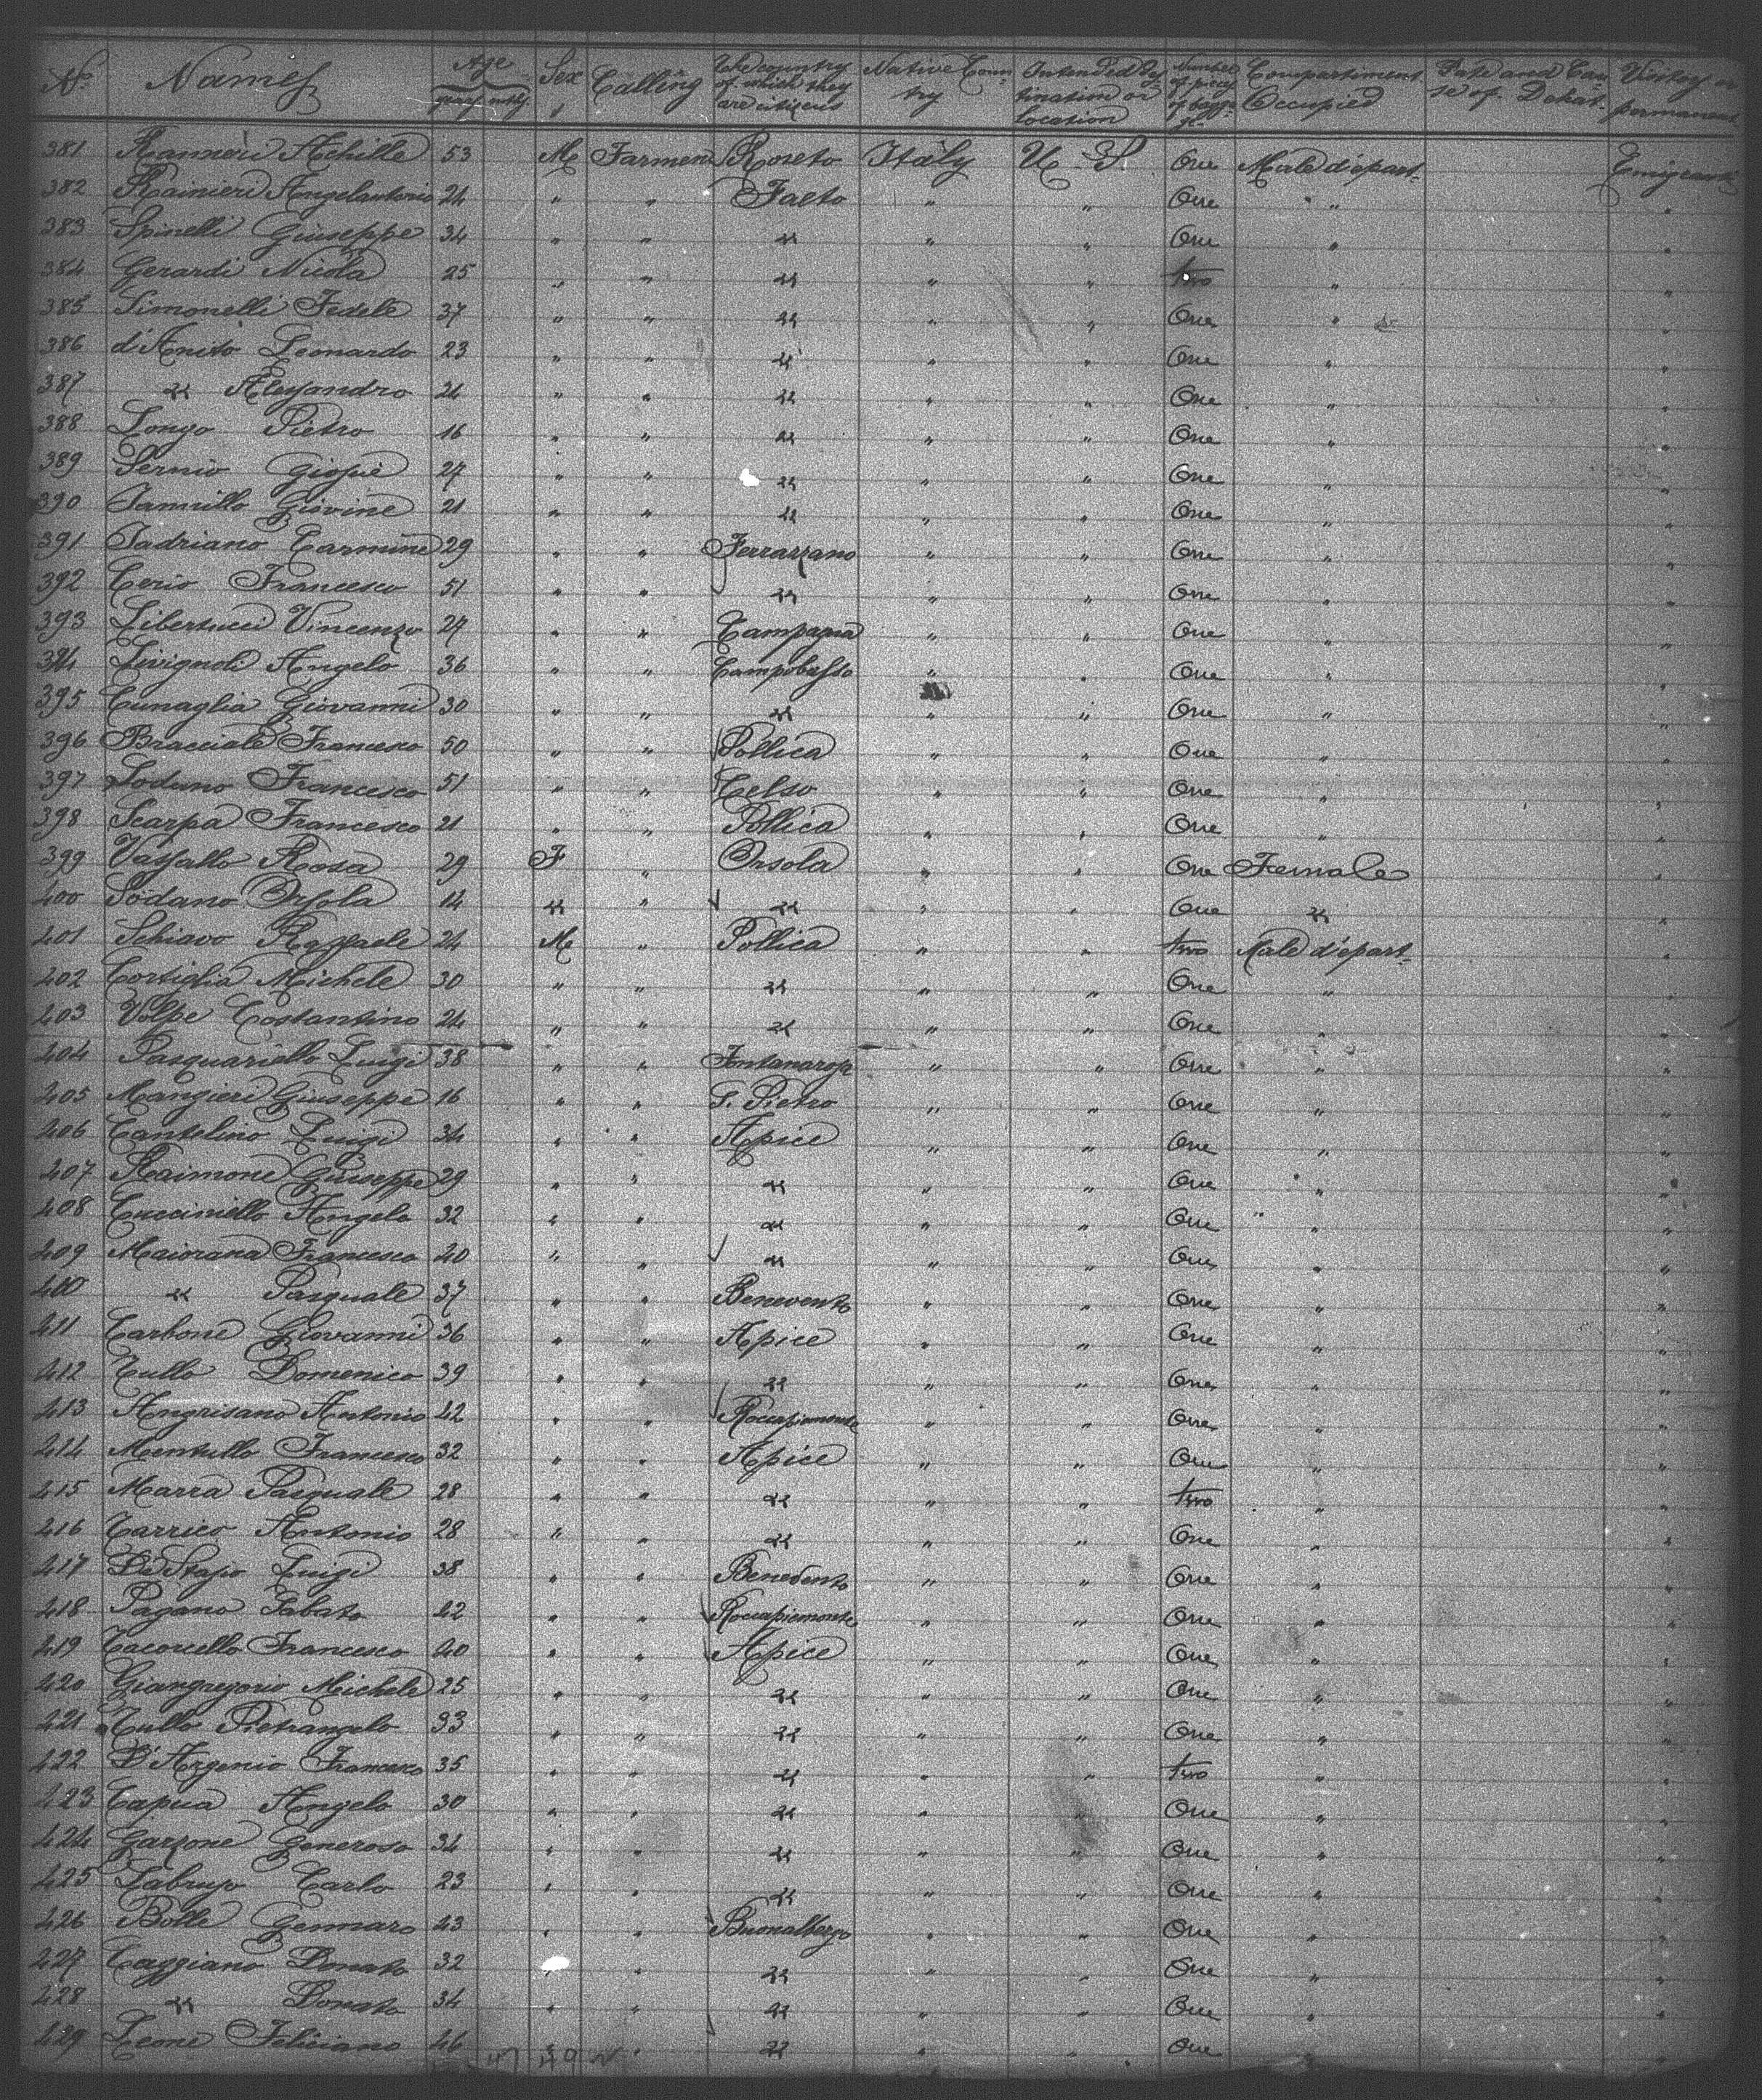 No. Names Age years mths. Sex Calling The country of which they are citizens Native Country Intended Destination or location Number of pieces of baggage Compartiment Occupied Date and Cause of Death Visitors or permanent
381 Rannieri Achille 53 M Farmers Roseto Italy U. S. One Male départ. Emigrant
382 Rainieri Angelantonio 24 " " Faeto " " One " "
383 Spinelli Giuseppe 34 " " " " " One " "
384 Gerardi Nicola 25 " " " " " two " "
385 Simonelli Fedele 37 " " " " " One " "
386 d'Anito Leonardo 23 " " " " " One " "
387 " Alessandro 24 " " " " " One " "
388 Longo Pietro 16 " " " " " One " "
389 Sernio Giosuè 27 " " " " " One " "
390 Iannillo Giovine 21 " " " " " One " "
391 Iadriano Carmine 29 " " Ferrazzano " " One " "
392 Cerio Francesco 51 " " " " " One " "
393 Libertucci Vincenzo 27 " " Campagna " " One " "
394 Livignoli Angelo 36 " " Campobasso " " One " "
395 Cunaglia Giovanni 30 " " " " " One " "
396 Bracciale Francesco 50 " " Pollica " " One " "
397 Sodano Francesco 51 " " Celso " " One " "
398 Scarpa Francesco 21 " " Pollica " " One " "
399 Vassallo Rosa 29 F " Orsola " " One Female "
400 Sodano Orsola 14 " " " " " One " "
401 Schiavo Raffaele 24 M " Pollica " " two Male départ. "
402 Cortiglia Michele 30 " " " " " One " "
403 Volpe Costantino 24 " " " " " One " "
404 Pasquariello Luigi 38 " " Fontanarosa " " One " "
405 Mangieri Giuseppe 16 " " S. Pietro " " One " "
406 Cantelino Luigi 34 " " Apice " " One " "
407 Raimone Giuseppe 29 " " " " " One " "
408 Cucciniello Angelo 32 " " " " " One " "
409 Maiorana Francesco 40 " " " " " One " "
410 " Pasquale 37 " " Benevento " " One " "
411 Carbone Giovanni 36 " " Apice " " One " "
412 Cullo Domenico 39 " " " " " One " "
413 Angrisano Antonio 42 " " Roccapiemonte " " One " "
414 Mentullo Francesco 32 " " Apice " " One " "
415 Marra Pasquale 28 " " " " " two " "
416 Carrico Antonio 28 " " " " " One " "
417 Di Stasio Luigi 38 " " Benevento " " One " "
418 Pagano Sabato 42 " " Roccapiemonte " " One " "
419 Cocorcello Francesco 40 " " Apice " " One " "
420 Giangregorio Michele 25 " " " " " One " "
421 Cullo Pietrangelo 33 " " " " " One " "
422 D'Argenio Francesco 35 " " " " " two " "
423 Capua Angelo 30 " " " " " One " "
424 Garzone Generoso 34 " " " " " One " "
425 Labruzo Carlo 23 " " " " " One " "
426 Bolle Gennaro 43 " " Buonalbergo " " One " "
427 Caggiano Donato 32 " " " " " One " "
428 " Donato 34 " " " " " One " "
429 Leone Feliciano 46 " " " " " One "